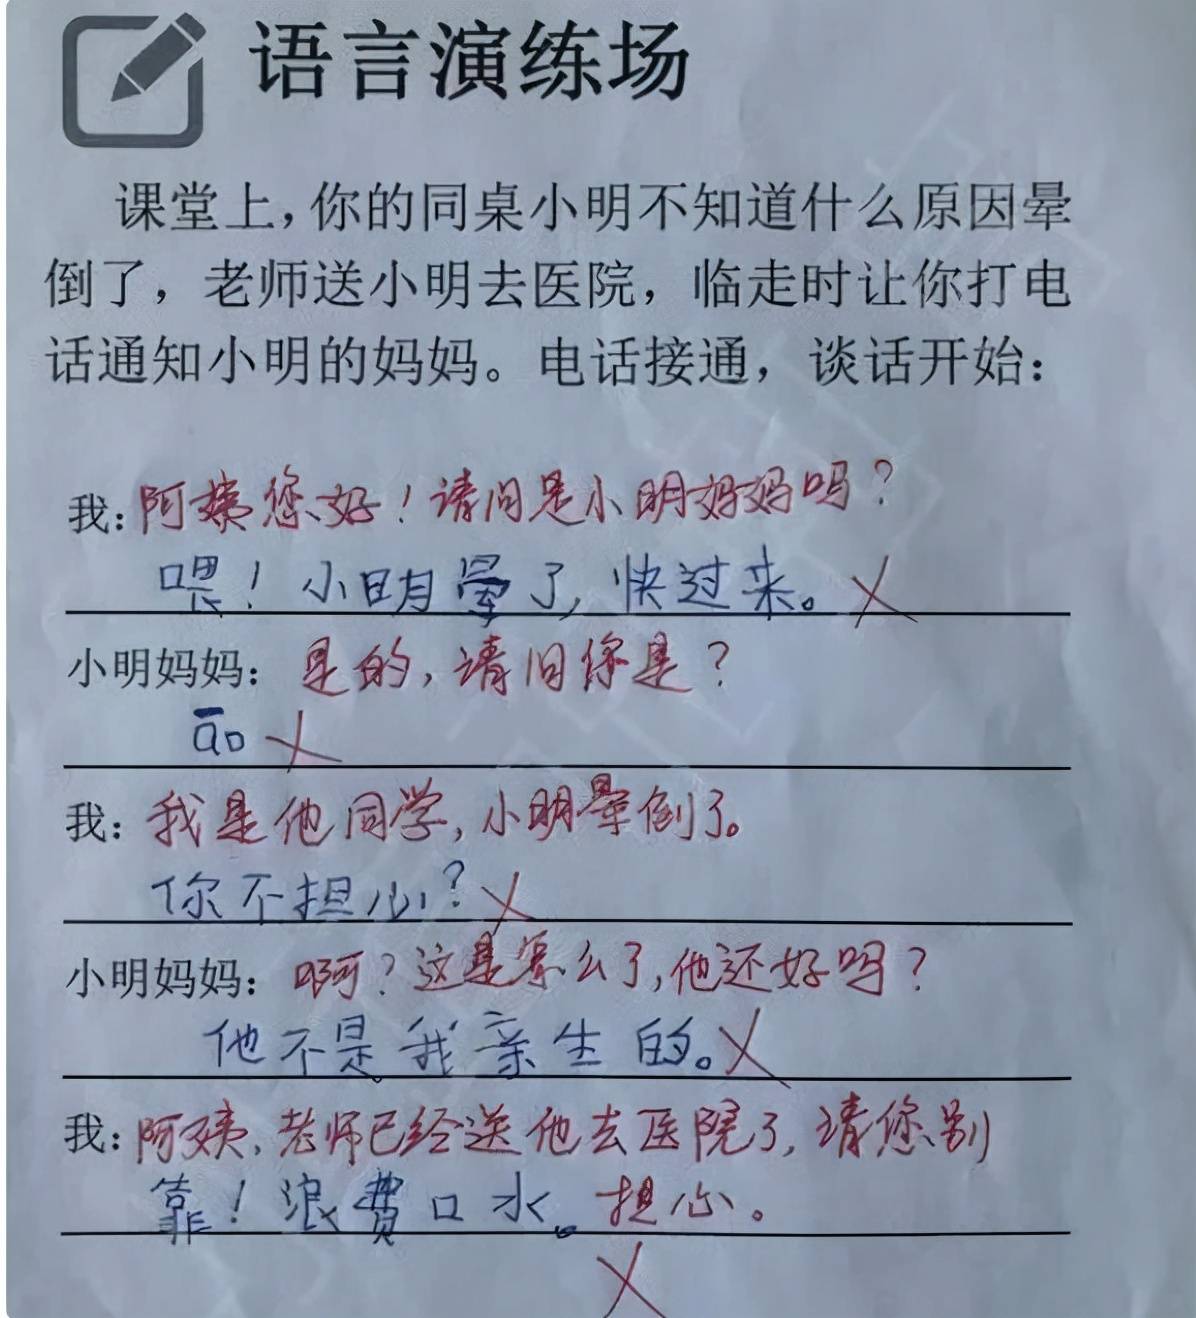 语言演练场
课堂上，你的同桌小明不知道什么原因晕
倒了，老师送小明去医院，临走时让你打电
话通知小明的妈妈。电话接通，谈话开始：
我：阿姨您好！请问是小明妈妈吗？
喂！小明晕了，快过来。
小明妈妈：是的，请问你是？
āo
我：我是他同学，小明晕倒了。
你不担心？
小明妈妈：啊？这是怎么了，他还好吗？
他不是我亲生的。
我：阿姨，老师已经送他去医院了，请您别
靠！浪费口水。担心。